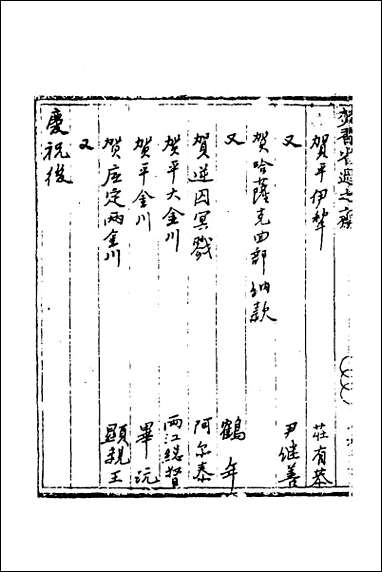 賀平伊犂　莊有恭
又　尹繼善
賀哈薩克西部納款
又　鶴年
賀逆囚冥戮　阿尔泰
賀平大金川　两江總督
賀平金川　畢沅
賀底定兩金川　顯親王
又
慶祝後